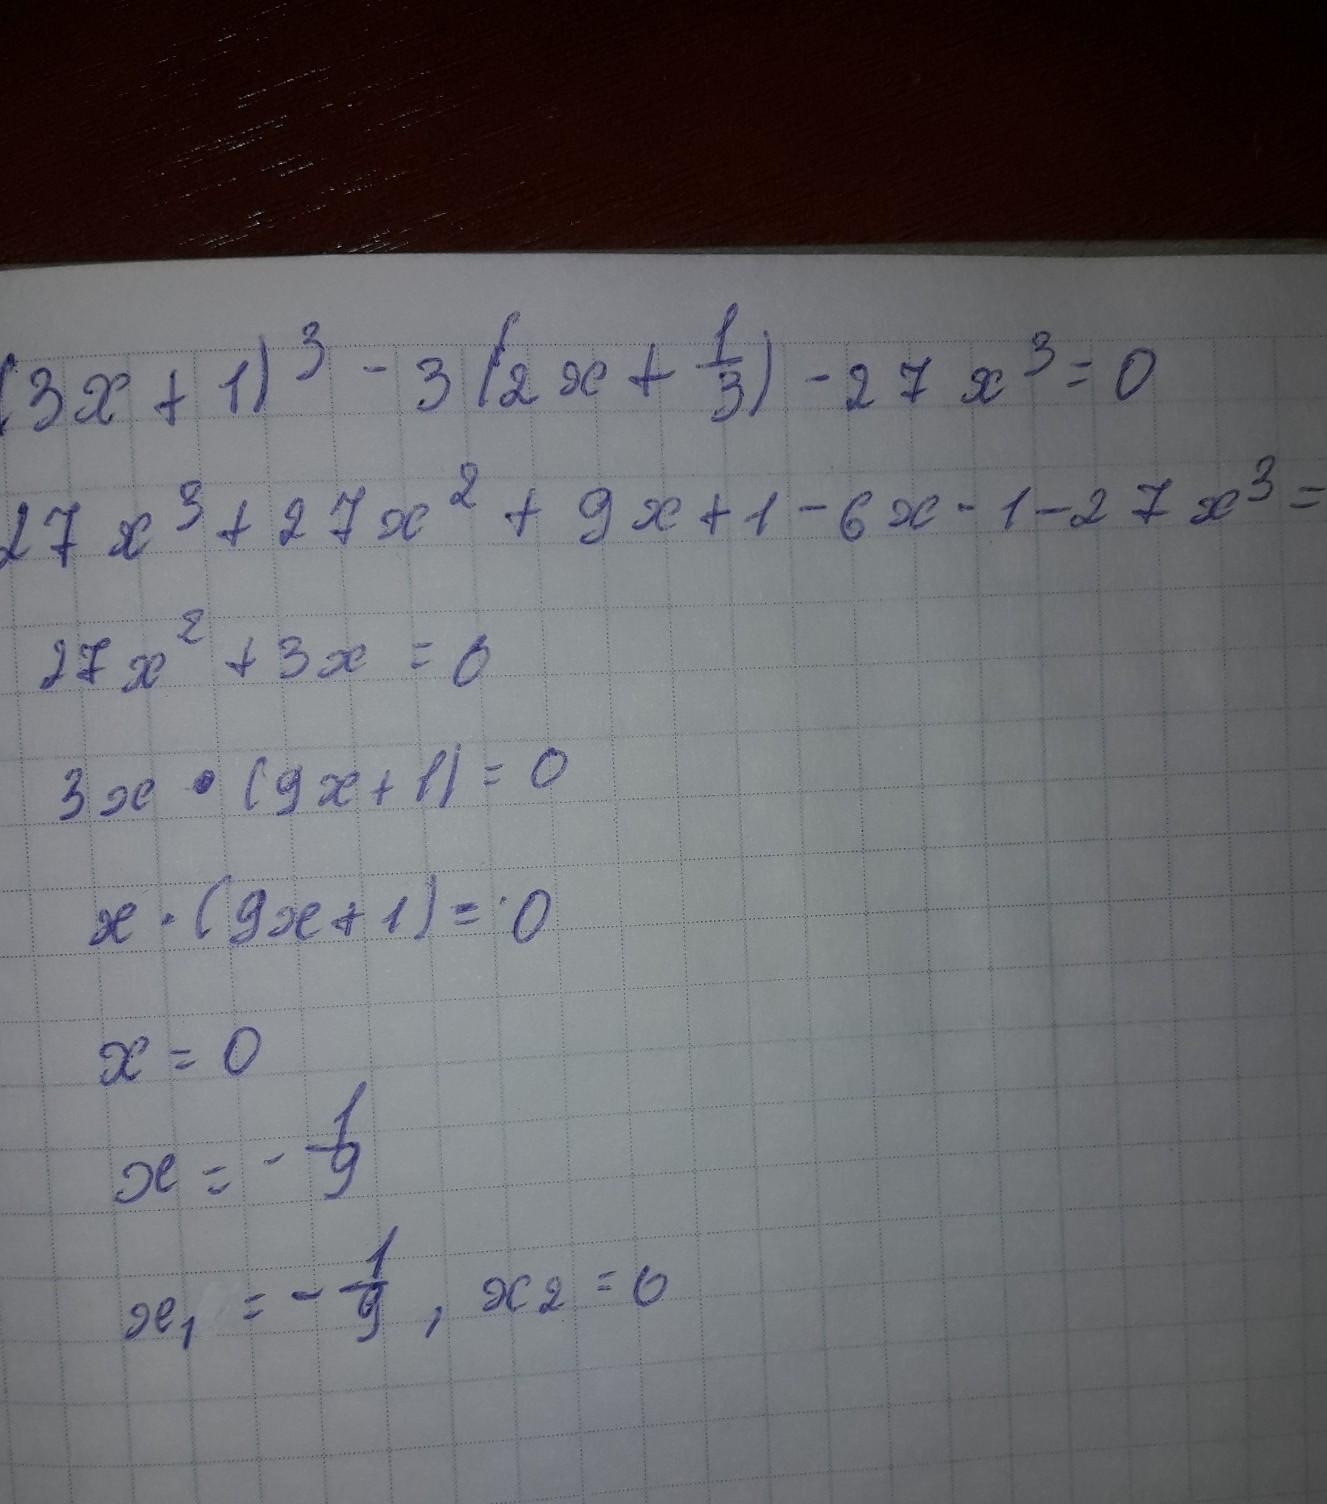 (3x+1)³-3(2x+1/3)-27x³=0
27x³+27x²+9x+1-6x-1-27x³=
27x²+3x=0
3x•(9x+1)=0
x·(9x+1)=0
x=0
x=-1/9
x₁=-1/9, x2=0